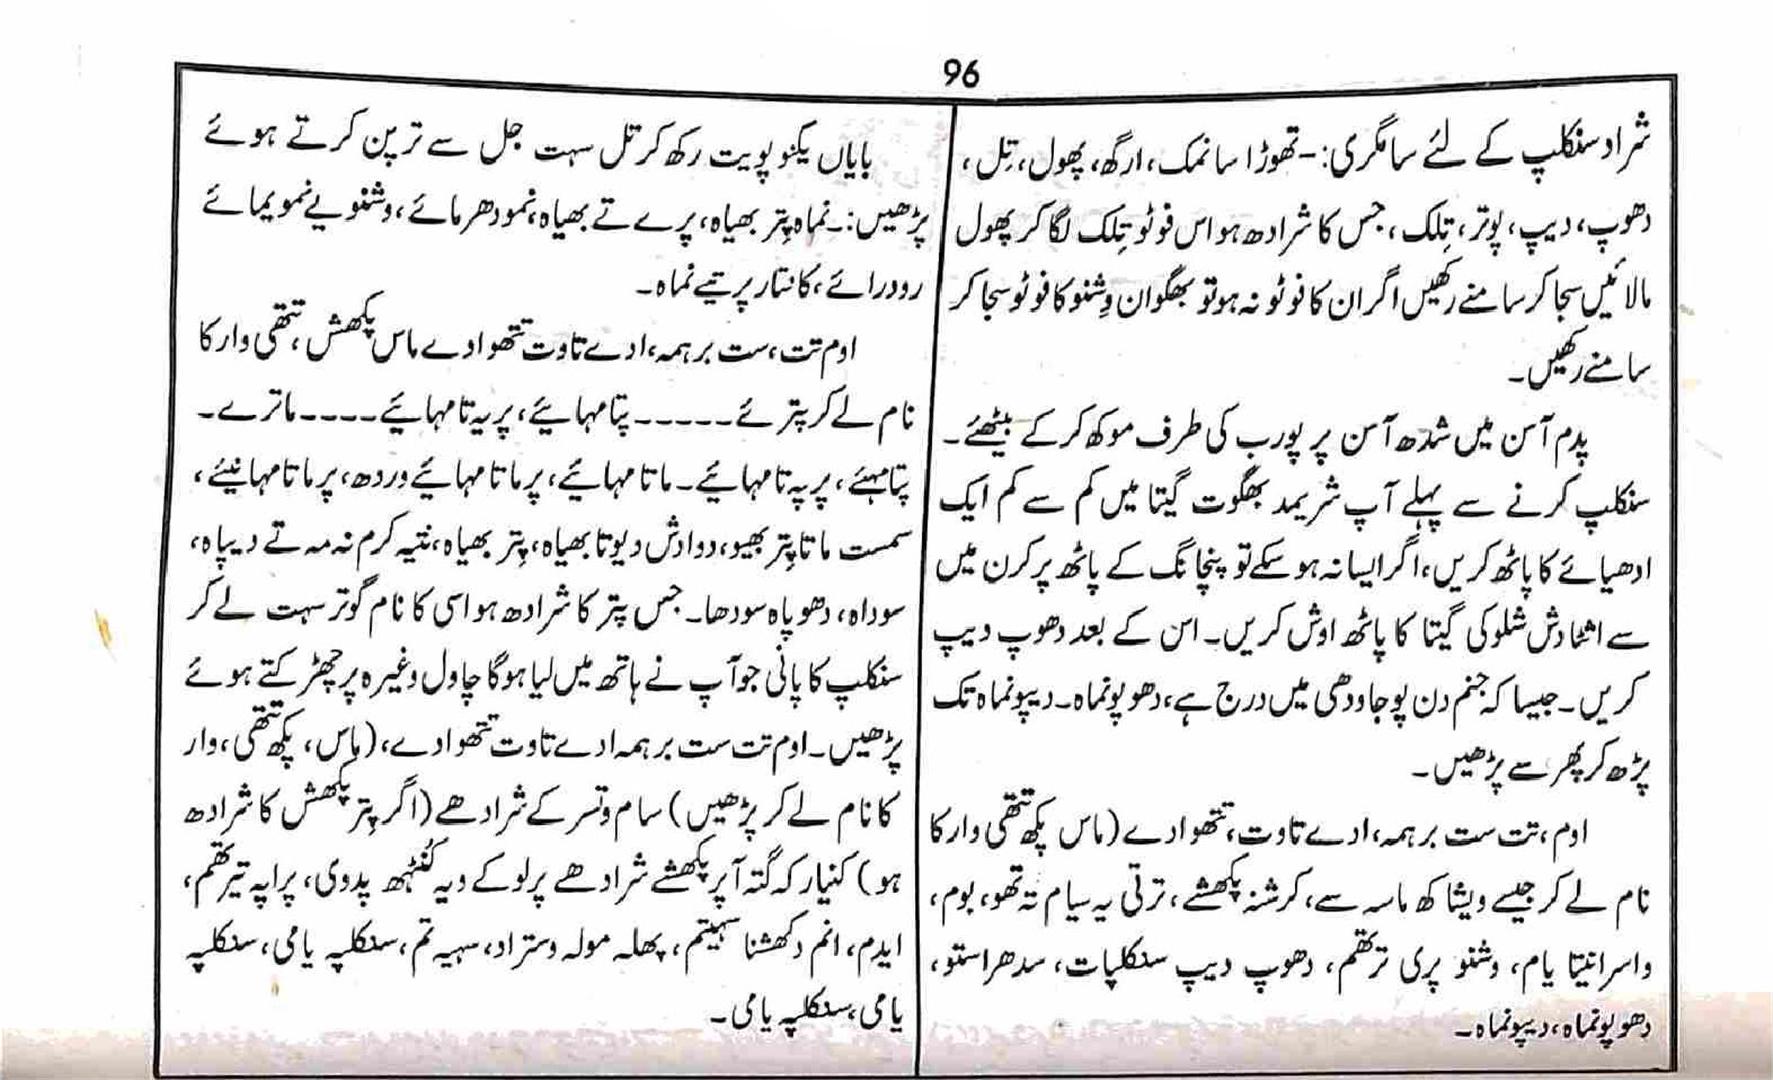 96
شرادسنکلپ کے لئے سامگری:- تھوڑا سا نمک، ارگھ، پھول، تِل،
دھوپ، دیپ، پوتر، تِلک، جس کا شرادھ ہو اس فوٹو تِلک لگا کر پھول
مالائیں سجا کر سامنے رکھیں اگر ان کا فوٹو نہ ہو تو بھگوان وِشنو کا فوٹو سجا کر
سامنے رکھیں۔
پدم آسن میں شدھ آسن پر پورب کی طرف موکھ کر کے بیٹھئے۔
سنکلپ کرنے سے پہلے آپ شریمد بھگوت گیتا میں کم سے کم ایک
ادھیائے کا پاٹھ کریں، اگر ایسا نہ ہو سکے تو پنچانگ کے پاٹھ پرکرن میں
سے اشٹادش شلوکی گیتا کا پاٹھ اوش کریں۔ اس کے بعد دھوپ دیپ
کریں۔ جیسا کہ جنم دن پوجا ودھی میں درج ہے، دھوپونماہ۔ دیپونماہ تک
پڑھ کر پھر سے پڑھیں۔
اوم، تت ست برہمہ، ادے تاوت، تتھوادے (ماس پکھ تتھی وار کا
نام لے کر جیسے ویشاکھ ماسہ سے، کرشنہ پکھشے، ترتی یہ سیام تہ تھو، بوم،
واسرانیتا یام، وشنو پری ترتھم، دھوپ دیپ سنکلپات، سدھراستو،
دھوپونماہ، دیپونماہ۔
بایاں یکنوپویت رکھ کر تل سہت جل سے ترپن کرتے ہوئے
پڑھیں:۔ نماہ پِتر بھیاہ، پرے تے بھیاہ، نمودھرمائے، وشنویے نمویمائے
رودرائے، کانتار پرتیے نماہ۔
اوم تت، ست برہمہ، ادے تاوت تتھوادے ماس پکھش، تتھی وار کا
نام لے کر پترئے ۔۔۔۔۔ پتامہائیے، پرپہ تامہائیے ۔۔۔۔ ماترے۔
پتامہئے، پرپہ تامہائیے۔ ماتامہائیے، پرماتامہائیے وردھ، پرماتامہائیئے،
سمست ماتاپِتر بھیو، دوادش دیوتا بھیاہ، پِتر بھیاہ، نتیہ کرم نہ مہ تے دیپاہ،
سوداہ، دھوپاہ سودھا۔ جس پتر کا شرادھ ہو اسی کا نام گوتر سہت لے کر
سنکلپ کا پانی جو آپ نے ہاتھ میں لیا ہوگا چاول وغیرہ پر چھڑکتے ہوئے
پڑھیں۔ اوم تت ست برہمہ ادے تاوت تتھوادے، (ماس، پکھ تتھی، وار
کا نام لے کر پڑھیں) سام وتسر کے شرادھے (اگر پِتر پکھش کا شرادھ
ہو) کنیارکہ گتہ آپر پکھشے شرادھے پرلوکے ویہ کُنٹھہ پدوی، پراپہ تیرتھم،
ایدم، انم دکھشنا سہیتم، پھلہ مولہ وستراد، سہیہ تم، سنکلپہ یامی، سنکلپہ
یامی، سنکلپہ یامی۔